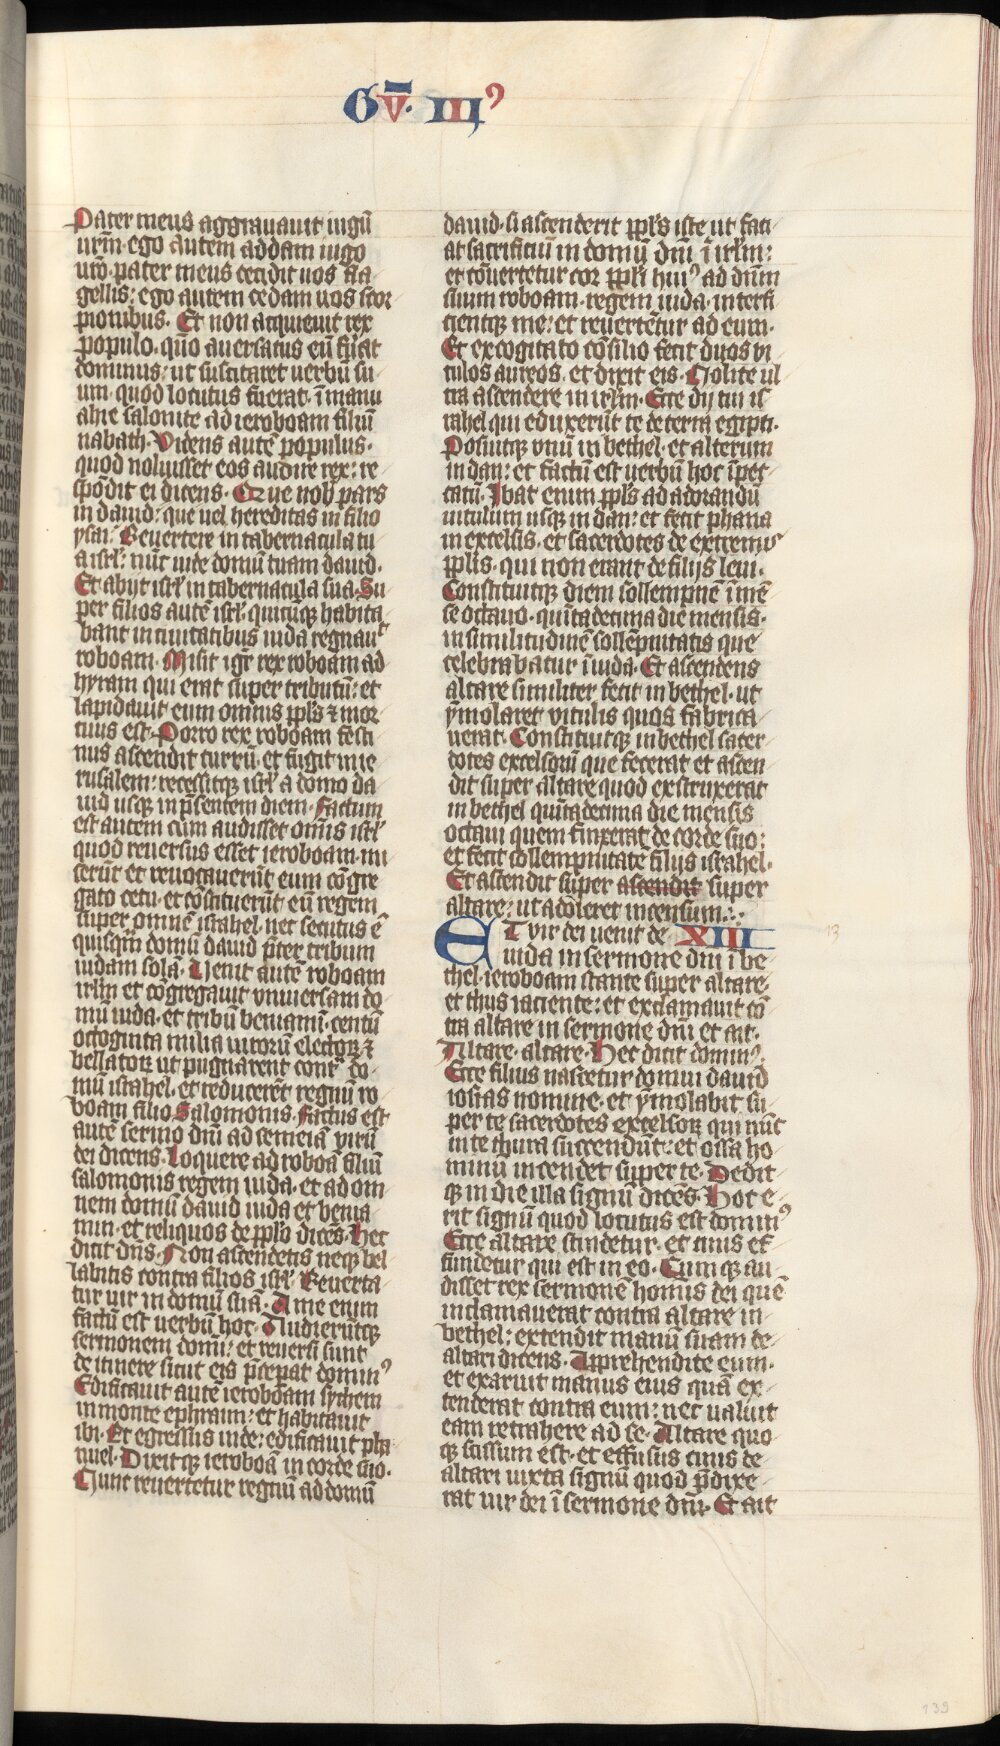 G v̄· IIIꝰ
Pater meus aggrauauit iugū
urm̄· ego autem addam iugo
uro͞· pater meus cecidit uos fla
gellis: ego autem cedam uos scor
pionibus· Et non acquieuit rex
populo· qm̄o auersatus eū fu͛at
dominus: ut suscitaret uerbū su
um· quod locutus fuerat· ī manu
ahie salonite ad ieroboam filiū
nabath· Videns autē populus·
quod noluisset eos audire rex: re
spōdit ei dicens· Que nob̄ pars
in dauid: que uel hereditas in filio
ysai: Reuertere in tabernacula tu
a isrl̄: nūc uide domū tuam dauid·
Et abijt isrl̄ in tabernacula sua· Su
per filios autē isrl̄ quicūqꝫ habita
bant in ciuitatibus iuda regnauͭ
roboam· Misit igr̄ rex roboam ad
hyram qui erat super tributū: et
lapidauit eum omnis ppl̄s ⁊ mor
tuus est· Porro rex roboam festi
nus ascendit currū· et fugit in ie
rusalem: recessitqꝫ isrl̄ a domo da
uid usqꝫ in p̄sentem diem· Factum
est autem cum audisset om̄is isrl̄
quod reuersus esset ieroboam· mi
serūt et reuocauerūt eum cō gre
gato cetu· et cōstituerūt eū regem
super omnē israhel· nec secutus ē
quisqm̄ domū dauid p̄ter tribum
iudam solā· Venit autē roboam
irlm̄ et cōgregauit vniuersam do
mū iuda· et tribū beniamī· centū
octoginta milia uirorū electoꝝ ⁊
bellatoꝝ ut pugnarent cont͛ do
mū israhel· et reducerēt regnū ro
boam filio Salomonis· Factus est
autē sermo dn̄i ad semeiā virū
dei dicens· Loquere ad roboā filiū
salomonis regem iuda· et ad om
nem domū dauid iuda et benia
min· et reliquos de ppl̄o dicēs· Hec
dicit dn̄s· Non ascendetis neqꝫ bel
labitis contra filios isrl̄· Reuerta
tur uir in domū suā· A me enim
factū est uerbū hoc· Audierūtqꝫ
sermonem domī: et reuersi sunt
de itinere sicut eis p̄ceꝑat dominꝰ
Edificauit autē ieroboam sychem
in monte ephraim: et habitauit
ibi· Et egressus inde: edificauit pha
nuel· Dixitqꝫ ieroboā in corde suo·
Nunc reuertetur regnū ad domū
dauid· si ascenderit ppl̄s iste ut faci
at sacrificiū in domū dn̄i ī irlm̄:
et cōuertetur cor ppl̄i huiꝰ ad dn̄m
suum roboam· regem iuda· interfi
cientqꝫ me: et reuertētur ad eum·
Et excogitato cōsilio fecit duos vi
tulos aureos· et dixit eis· Nolite ul
tra ascendere in irlm̄· Ecce dij tui is
rahel qui eduxerūt te de terra egipti·
Posuitqꝫ vnū in bethel· et alterum
in dan: et factū est uerbū hoc ī pec
catū· Ibat enim ppl̄s ad adorandū
uitulum usqꝫ in dan: et fecit phana
in excelsis· et sacerdotes de extremiꝰ
ppl̄is· qui non erant de filijs leui·
Constituitqꝫ diem sollempnē ī mē
se octauo· quītadecima die mensis·
in similitudinē sollēpnitatis que
celebrabatur ī iuda· Et ascendens
altare similiter fecit in bethel· ut
ymolaret vitulis quos fabrica
uerat· Constituitqꝫ in bethel sacer
dotes excelsorū que fecerat et ascen
dit super altare quod exstruxerat
in bethel quītadecima die mensis
octaui quem finxerat de corde suo:
et fecit sollempnitatē filijs israhel·
Et ascendit super ascendit super
altare: ut adoleret incensum·:·
ET vir dei uenit de XIII
iuda in sermone dn̄i ī be
thel· ieroboam stante super altare·
et thus iaciente: et exclamauit cō
tra altare in sermone dn̄i et ait·
Altare· altare· Hec dicit dominꝰ·
Ecce filius nascetur domui dauid
iosias nomine· et ymolabit su
per te sacerdotes excelsoꝝ qui nūc
in te thura succendūt: et ossa ho
minū incendet super te· Dedit
qꝫ in die illa signū dicēs· Hoc e
rit signū quod locutus est dominꝰ
Ecce altare scindetur· et cinis ef
fundetur qui est in eo· Cumqꝫ au
disset rex sermonē hominis dei quē
inclamauerat contra altare in
bethel: extendit manū suam de
altari dicens· Apprehendite eum·
et exaruit manus eius quā ex
tenderat contra eum: nec ualuit
eam retrahere ad se· Altare quo
qꝫ scissum est· et effusus cinis de
altari iuxta signū quod p̄dixe
rat uir dei ī sermone dn̄i· Et ait
13
139